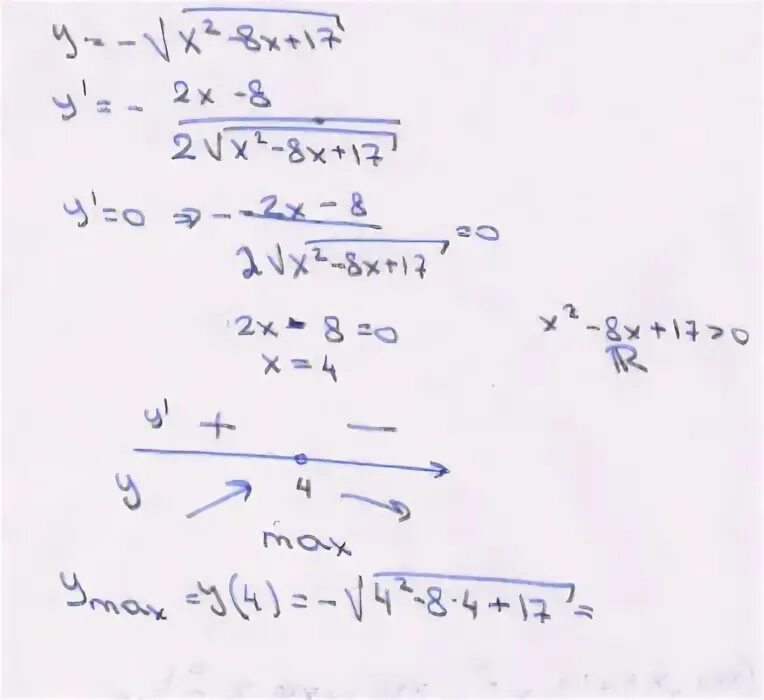 y = -√(x² - 8x + 17)
y' = - (2x - 8) / (2√(x² - 8x + 17))
y' = 0 ⇒ - (2x - 8) / (2√(x² - 8x + 17)) = 0
2x - 8 = 0
x = 4
x² - 8x + 17 > 0
ℝ
y' + −
y 4
max
y max = y(4) = -√(4² - 8·4 + 17) =